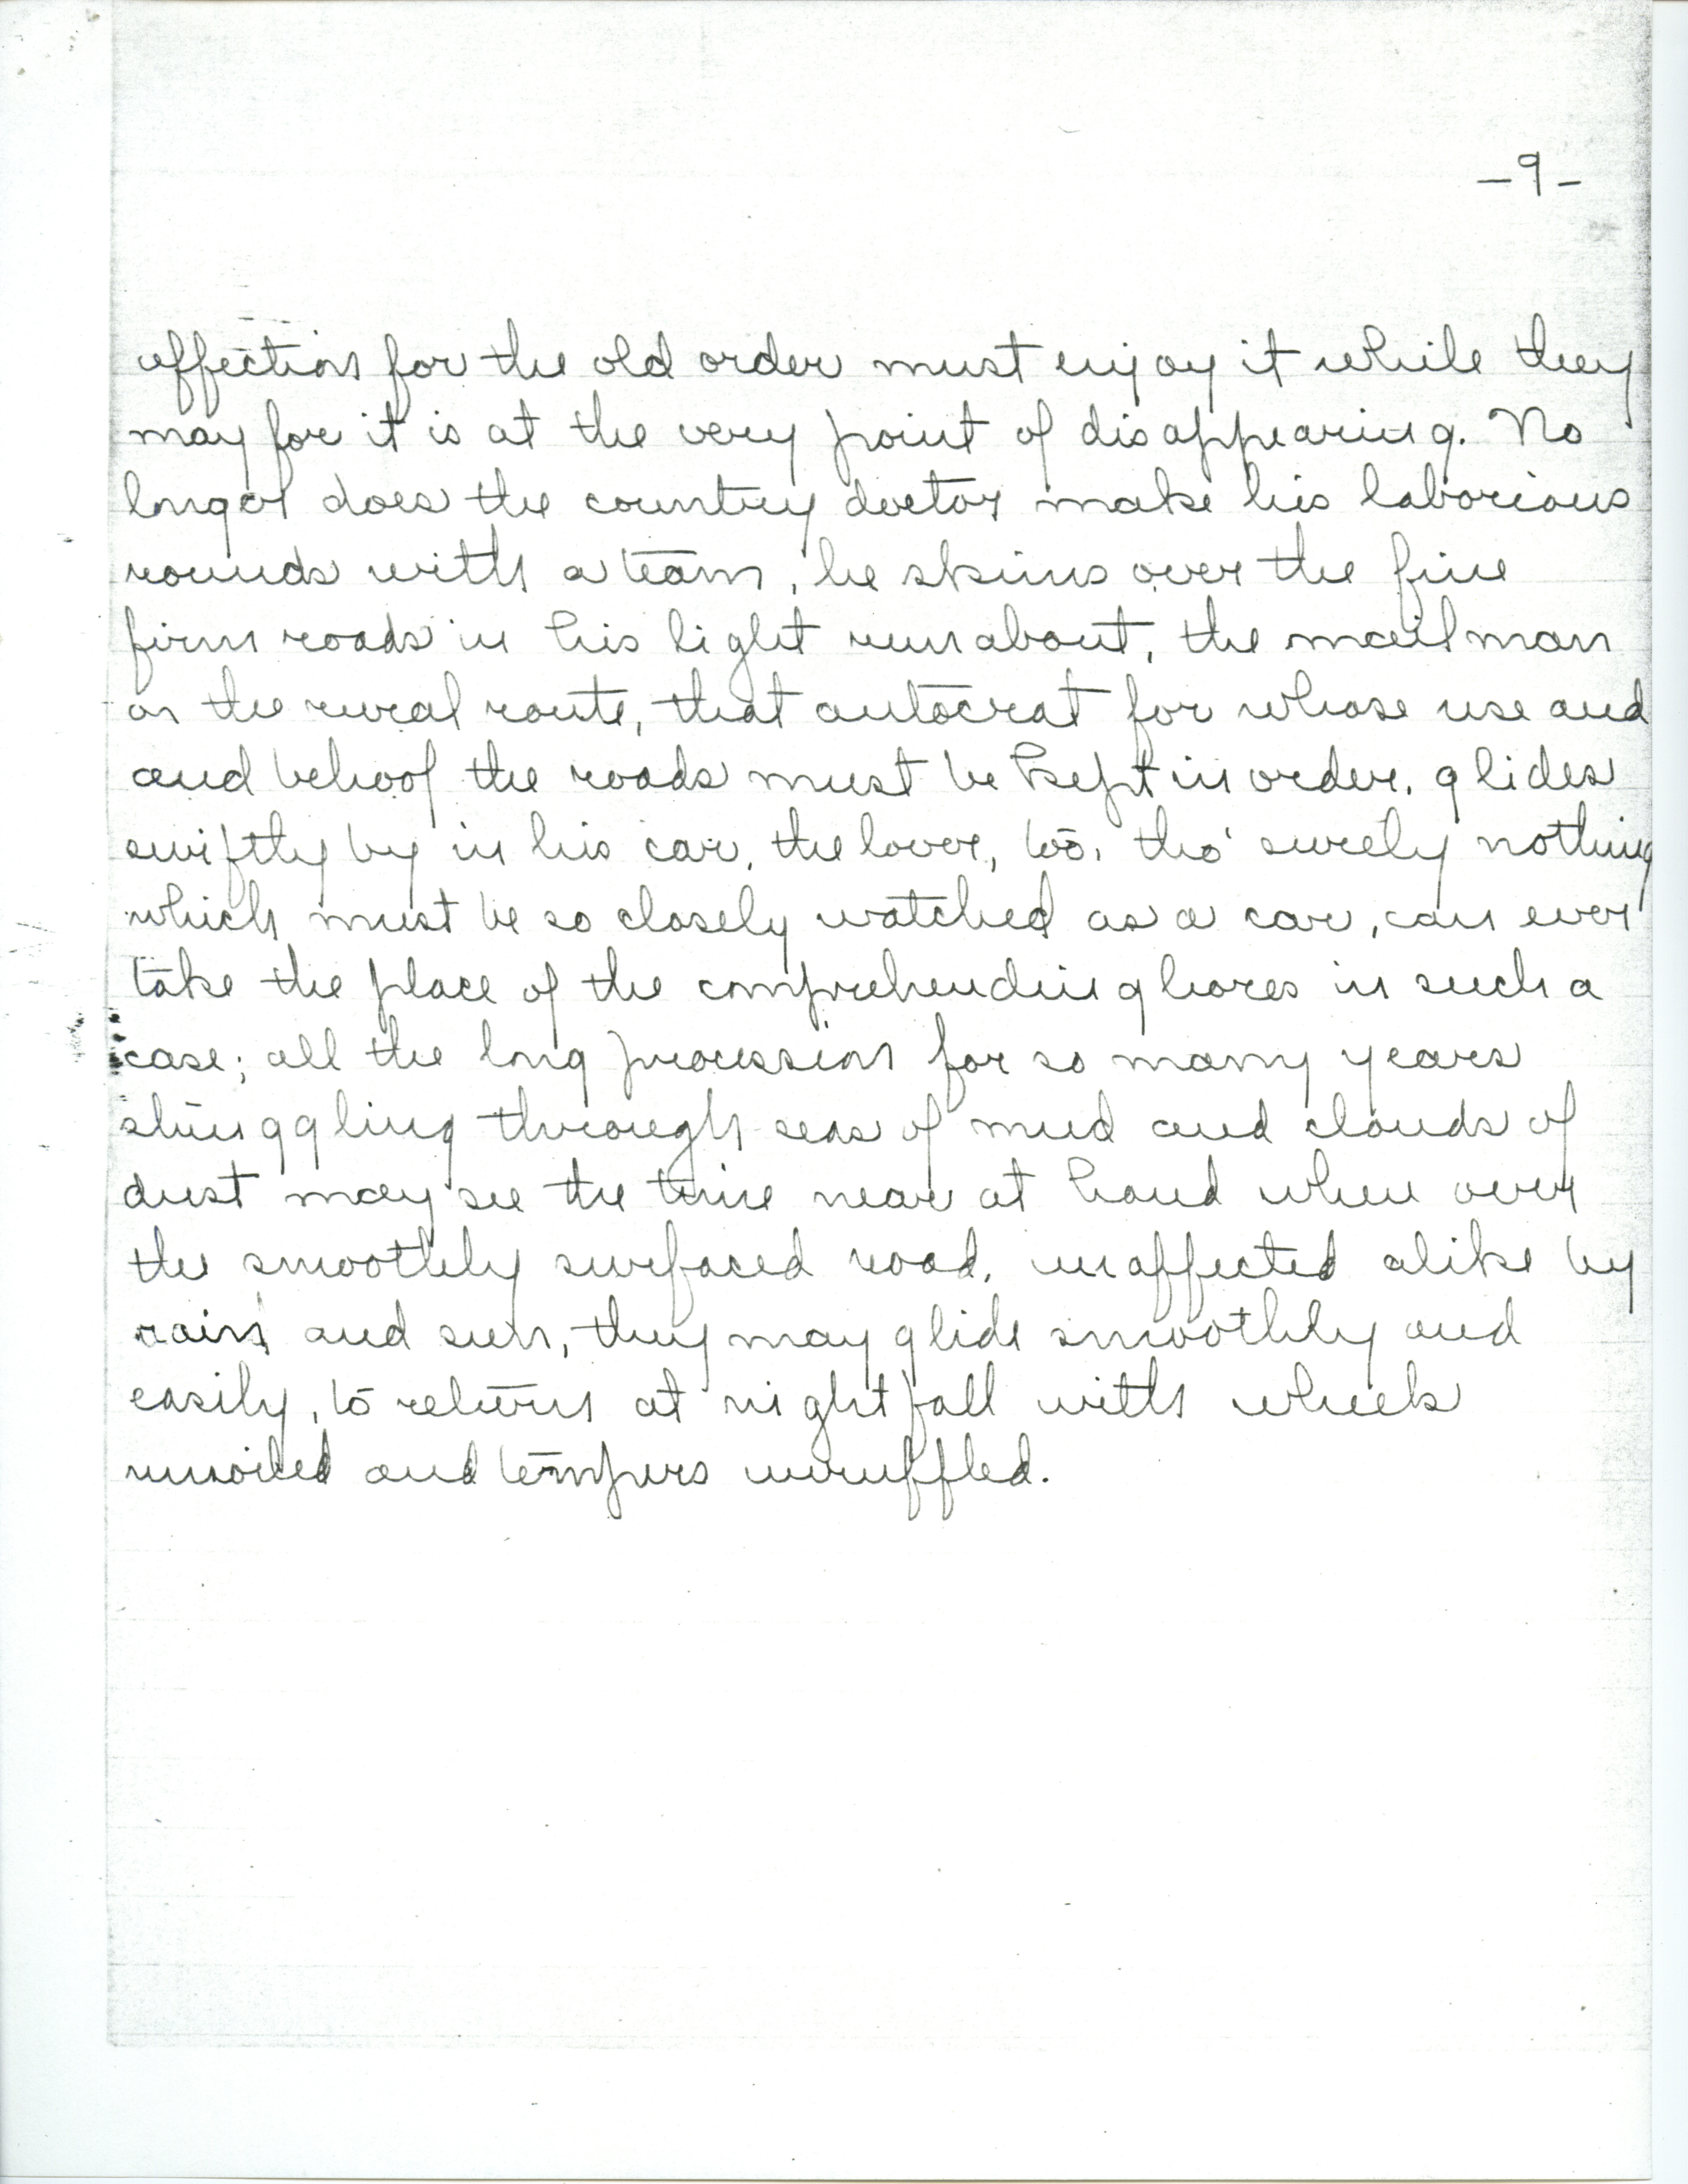 -9-
affection for the old order must enjoy it while they
may for it is at the very point of disappearing. No
longer does the country doctor make his laborious
rounds with a team, he skims over the fine
firm roads in his light runabout, the mailman
on the rural route, that autocrat for whose use and
and behoof the roads must be kept in order, glides
swiftly by in his car, the lover, too, tho' surely nothing
which must be so closely watched as a car, can ever
take the place of the comprehending hores in such a
case; all the long procession for so many years
struggling through seas of mud and clouds of
dust may see the time near at hand when over
the smoothly surfaced road, unaffected alike by
rain and sun, they may glide smoothly and
easily, to return at nightfall with wheels
unsoiled and tempers unruffled.